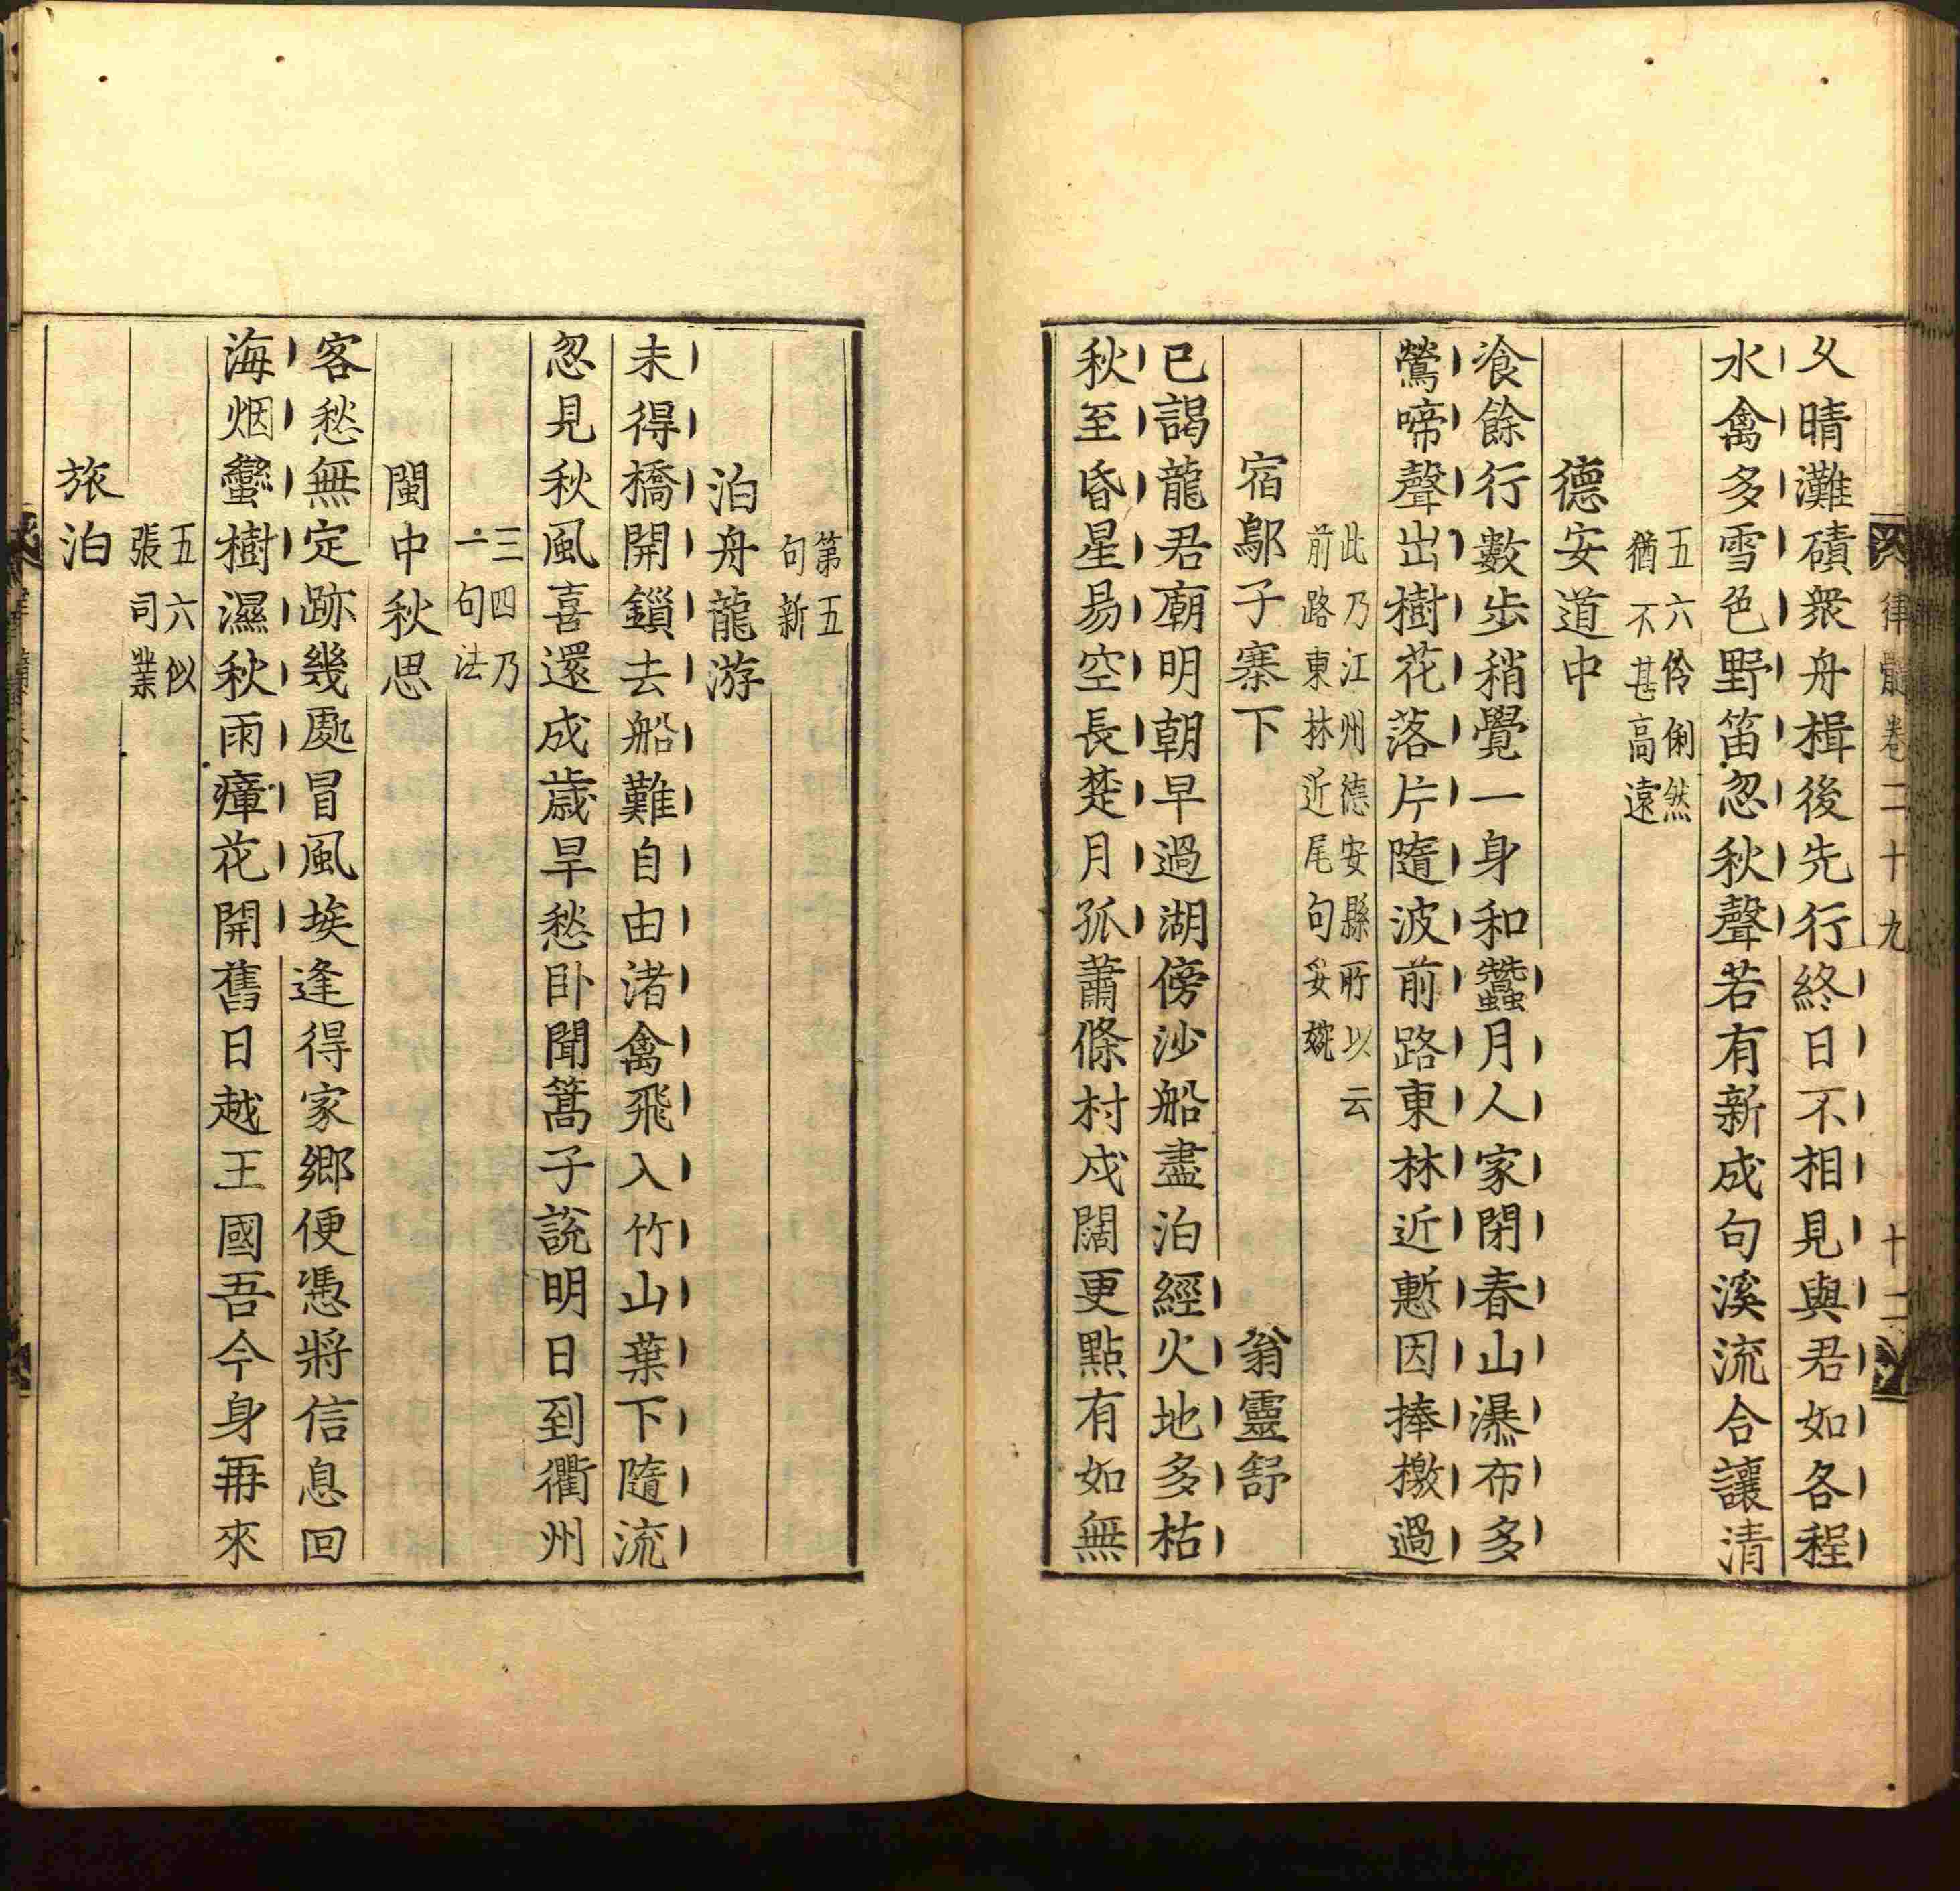 律髓卷二十九
十二
久晴灘磧衆舟楫後先行終日不相見與君如各程
水禽多雪色野笛忽秋聲若有新成句溪流合讓清
五六伶俐然
猶不甚高遠
德安道中
飡餘行數步稍覺一身和蠶月人家閉春山瀑布多
鶯啼聲出樹花落片隨波前路東林近慙因捧檄過
此乃江州德安縣所以云
前路東林近尾句妥婉
宿鄔子寨下
翁靈舒
已謁龍君廟明朝早過湖傍沙船盡泊經火地多枯
秋至昏星易空長楚月孤蕭條村戍闊更點有如無
第五
句新
泊舟龍游
未得橋開鎖去船難自由渚禽飛入竹山葉下隨流
忽見秋風喜還成歲旱愁卧聞篙子說明日到衢州
三四乃
一句法
閩中秋思
客愁無定跡幾處冒風埃逢得家鄉便憑將信息回
海烟蠻樹濕秋雨瘴花開舊日越王國吾今身再來
五六似
張司業
旅泊